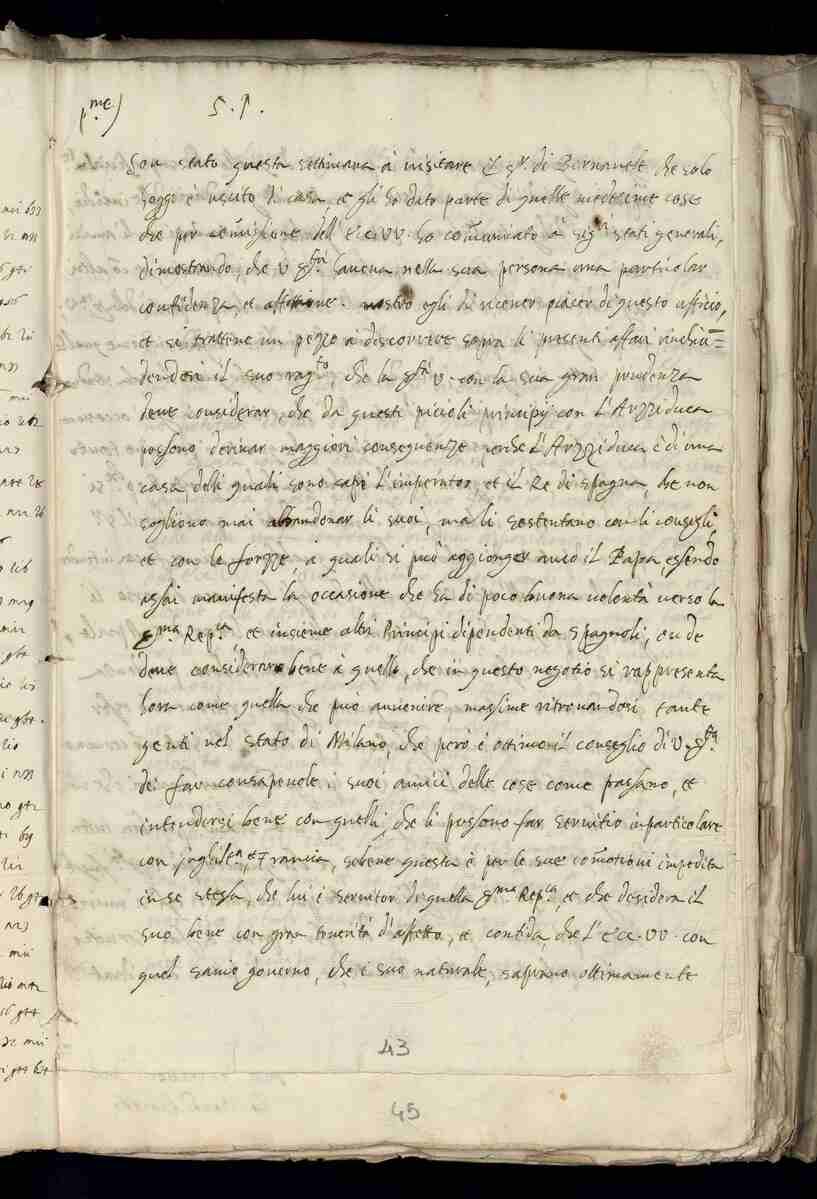 p.me)
S. P.
Son stato questa settimana à visitare il Sr. di Bernavelt che solo
hoggi è uscito di casa, et gli ho dato parte di quelle medesime cose
che per commissione dell'ecc. VV. ho communicato à Sig.ri stati generali,
dimostrando, che V. Ser.tà haveva nella sua persona una particolar
confidenza, et affettione. mostrò egli di ricever piacer di questo ufficio,
et si trattene un pezzo à discorrere sopra li presenti affari conchiu=
dendosi il suo rag.to, che la Ser.tà V. con la sua gran prudenza
deve considerar, che da questi piccioli principij con l'Arziduca
possono derivar maggiori conseguenze perche l'Arziduca è di una
casa, delli quali sono capi l'imperator, et il Re di spagna, che non
sogliono mai abbandonar li suoi, ma li sostentano con li consegli,
et con le forze, à quali si può aggionger anco il Papa, essendo
assai manifesta la occasione che ha di poco buona volontà verso la
Ser.ma Rep.ca et insieme altri Principi dipendenti da Spagnoli, onde
deve considerare bene à quello, che in questo negotio si rappresenta
hora come quella che può avvenire, massime ritrovandosi tante
genti nel stato di Milano, che però è ottimo il conseglio di V. Ser.tà
dei far consapevole i suoi amici delle cose come passano, et
intendersi bene con quelli, che li possono far servitio in particolare
con Inghilt.a, et Francia, sebene questa è per le sue comotioni impedita
in se stessa, che lui è servitor di quella Ser.ma Rep.ca, et che desidera il
suo bene con gran tenerità d'affetto, et confida che l'ecc. VV. con
quel savio governo, che è suo naturale, sapranno ottimamente
43
45